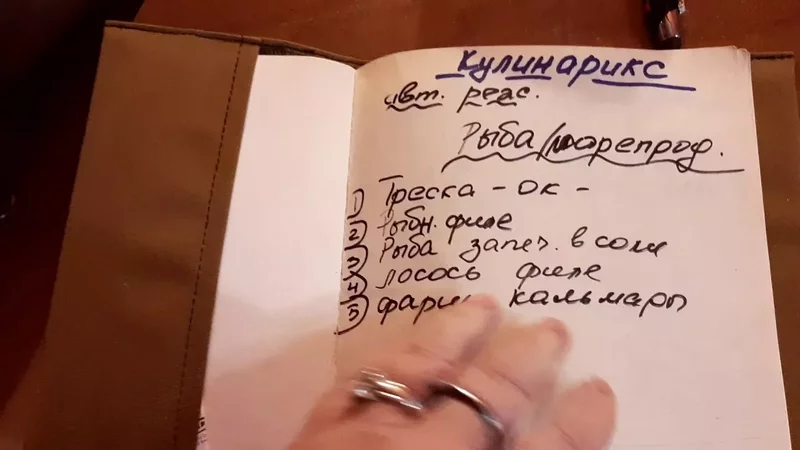 Кулинарикс
авт. рейс.
Рыба/морепрод.
1) Треска - ок -
2) Рыбн. филе
3) Рыба запеч. в соли
4) лосось филе
5) фарш кальмары